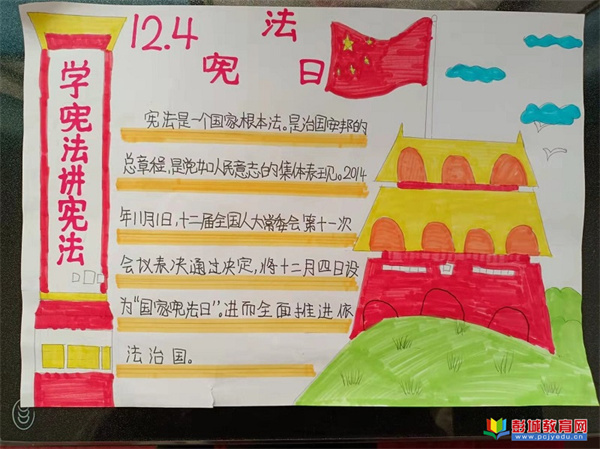 12.4
法
宪 日
学宪法讲宪法
宪法是一个国家根本法。是治国安邦的
总章程,是党和人民意志的集体表现。2014
年11月1日,十二届全国人大常委会第十一次
会议表决通过决定,将十二月四日设
为"国家宪法日"。进而全面推进依
法治国。
彭城教育网
www.pcjyedu.cn